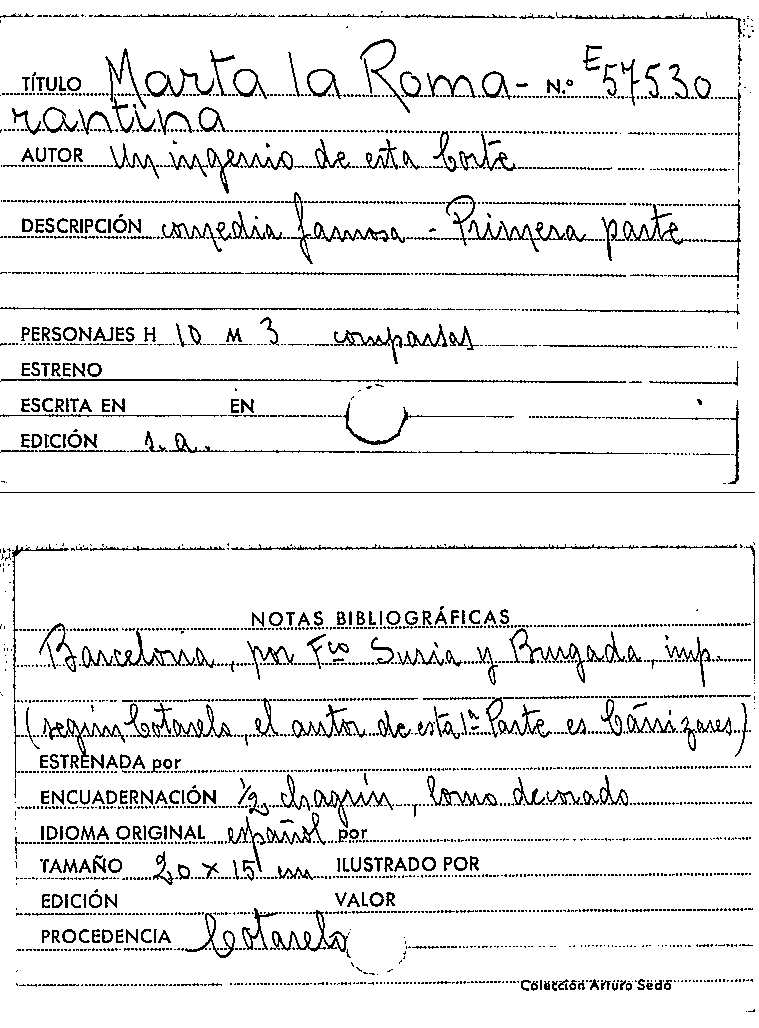 TÍTULO Marta la Roma- N.º E 57530
rantina
AUTOR Un ingenio de esta Corte
DESCRIPCIÓN comedia famosa - Primera parte
PERSONAJES H 10 M 3 comparsas
ESTRENO
ESCRITA EN EN
EDICIÓN s.a.
NOTAS BIBLIOGRÁFICAS
Barcelona, por Fco Suria y Burgada, imp.
(según Cotarelo, el autor de esta 1ª Parte es Cañizares)
ESTRENADA por
ENCUADERNACIÓN 1/2 chagrín, lomo decorado
IDIOMA ORIGINAL español por
TAMAÑO 20 x 15 cm ILUSTRADO POR
EDICIÓN VALOR
PROCEDENCIA Cotarelo
Colección Arturo Sedó